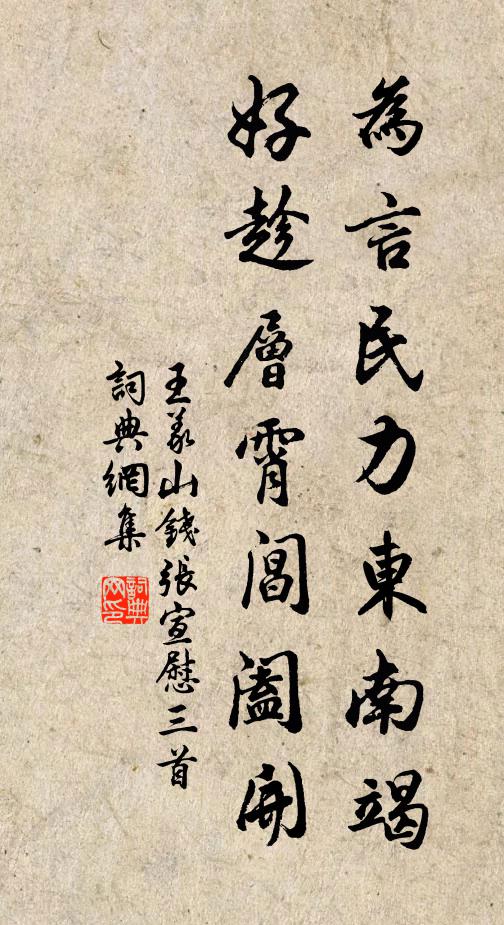 為言民力東南竭
好趁層霄閶闔開
王義山錢張宣慰三首
詞典網集
詞典
网印